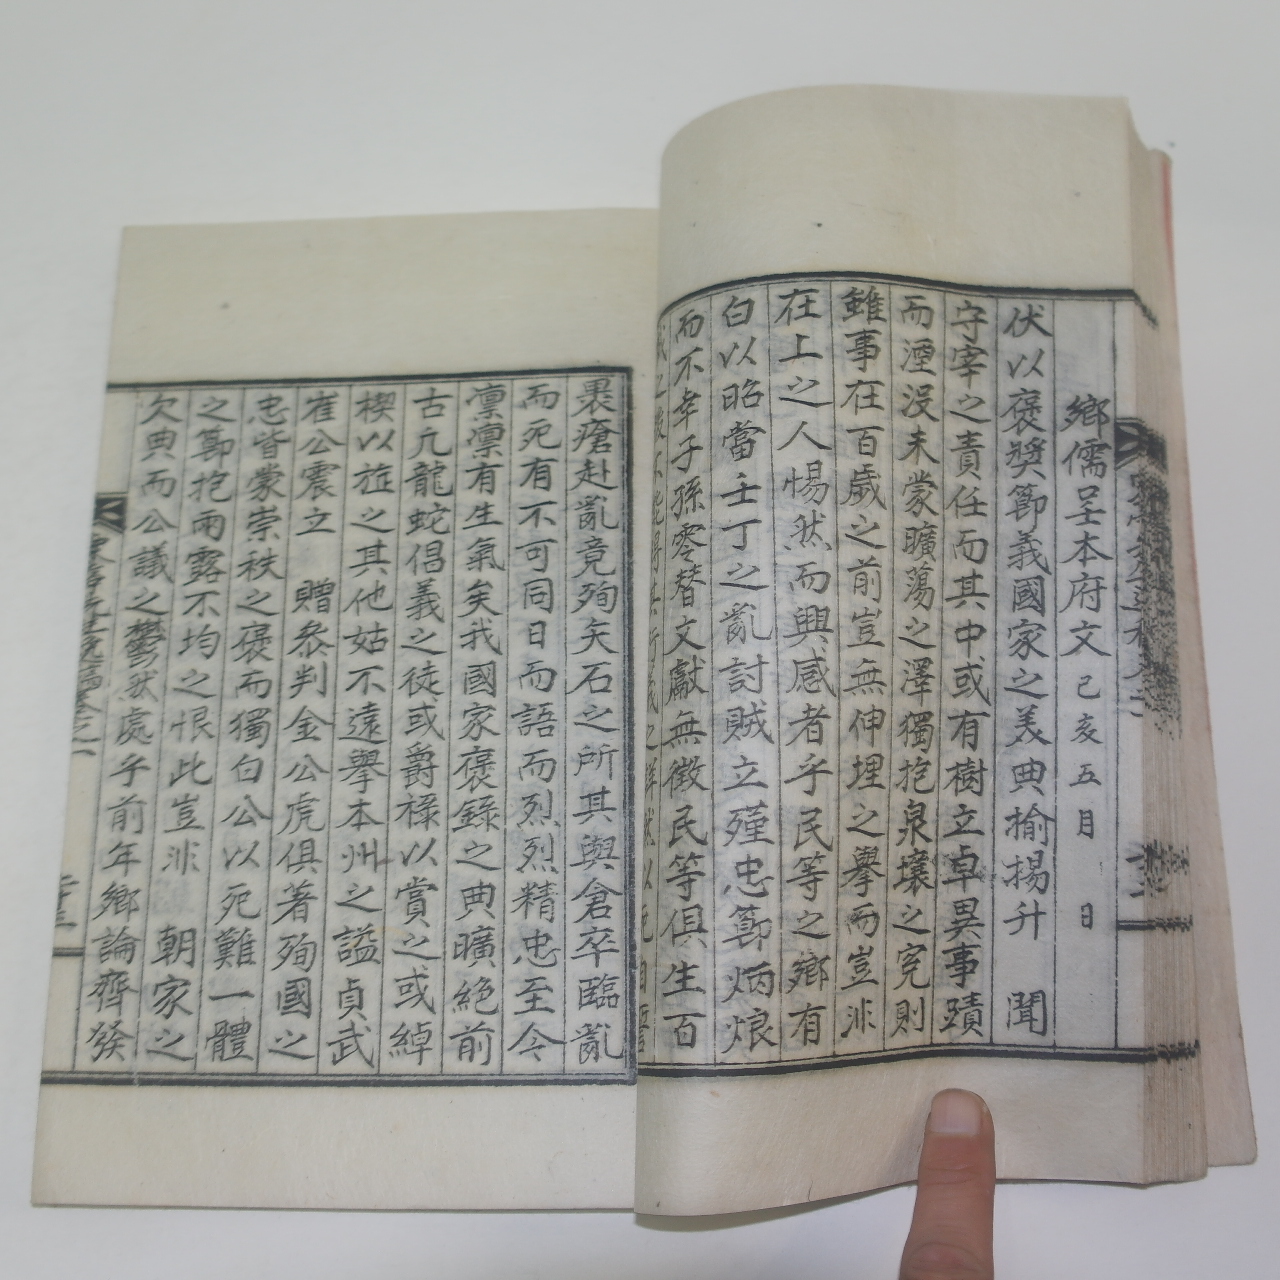 鄕儒呈本府文 己亥五月 日
伏以褒奬節義國家之美典揄揚升 聞
守宰之責任而其中或有樹立卓異事蹟
而湮沒未蒙曠蕩之澤獨抱泉壤之寃則
雖事在百歲之前豈無伸理之擧而豈非
在上之人惕然而興感者乎民等之鄕有
白以昭當壬丁之亂討賊立殣忠節炳烺
而不幸子孫零替文獻無徵民等俱生百
裹瘡赴亂竟殉矢石之所其與倉卒臨亂
而死有不可同日而語而烈烈精忠至今
凛凛有生氣矣我國家褒錄之典曠絶前
古凢龍蛇倡義之徒或爵祿以賞之或綽
楔以旌之其他姑不遠擧本州之謚貞武
崔公震立 贈叅判金公虎俱著殉國之
忠皆蒙崇秩之褒而獨白公以死難一體
之節抱雨露不均之恨此豈非 朝家之
欠典而公議之鬱然處乎前年鄕論齊發
二十三